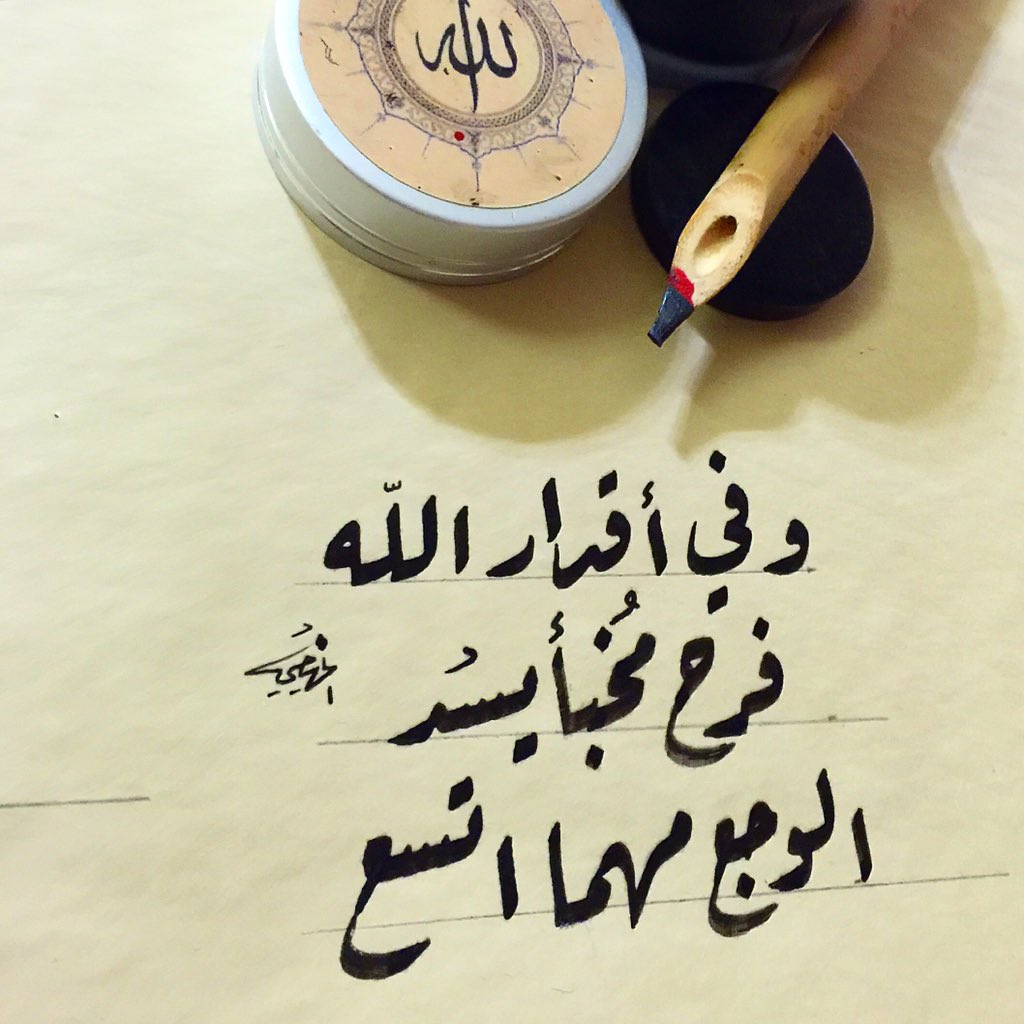 لله
وفي أقدار اللّه
فرح مُخبأ يسُد
الوجع مهما اتسع